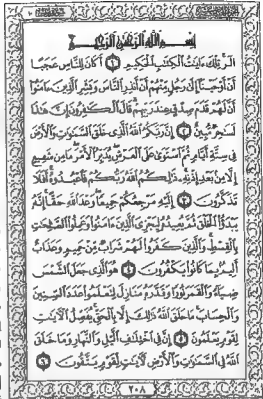 بِسْمِ اللَّهِ الرَّحْمَٰنِ الرَّحِيمِ
الٓرۚ تِلْكَ ءَايَٰتُ ٱلْكِتَٰبِ ٱلْحَكِيمِ ١ أَكَانَ لِلنَّاسِ عَجَبًا
أَنْ أَوْحَيْنَآ إِلَىٰ رَجُلٍ مِّنْهُمْ أَنْ أَنذِرِ ٱلنَّاسَ وَبَشِّرِ ٱلَّذِينَ ءَامَنُوٓا۟
أَنَّ لَهُمْ قَدَمَ صِدْقٍ عِندَ رَبِّهِمْ ۗ قَالَ ٱلْكَٰفِرُونَ إِنَّ هَٰذَا
لَسَٰحِرٌ مُّبِينٌ ٢ إِنَّ رَبَّكُمُ ٱللَّهُ ٱلَّذِى خَلَقَ ٱلسَّمَٰوَٰتِ وَٱلْأَرْضَ
فِى سِتَّةِ أَيَّامٍ ثُمَّ ٱسْتَوَىٰ عَلَى ٱلْعَرْشِ ۖ يُدَبِّرُ ٱلْأَمْرَ ۖ مَا مِن شَفِيعٍ
إِلَّا مِنۢ بَعْدِ إِذْنِهِۦ ۚ ذَٰلِكُمُ ٱللَّهُ رَبُّكُمْ فَٱعْبُدُوهُ ۚ أَفَلَا
تَذَكَّرُونَ ٣ إِلَيْهِ مَرْجِعُكُمْ جَمِيعًا ۖ وَعْدَ ٱللَّهِ حَقًّا ۚ إِنَّهُۥ
يَبْدَؤُا۟ ٱلْخَلْقَ ثُمَّ يُعِيدُهُۥ لِيَجْزِىَ ٱلَّذِينَ ءَامَنُوا۟ وَعَمِلُوا۟ ٱلصَّٰلِحَٰتِ
بِٱلْقِسْطِ ۚ وَٱلَّذِينَ كَفَرُوا۟ لَهُمْ شَرَابٌ مِّنْ حَمِيمٍ وَعَذَابٌ
أَلِيمٌۢ بِمَا كَانُوا۟ يَكْفُرُونَ ٤ هُوَ ٱلَّذِى جَعَلَ ٱلشَّمْسَ
ضِيَآءً وَٱلْقَمَرَ نُورًا وَقَدَّرَهُۥ مَنَازِلَ لِتَعْلَمُوا۟ عَدَدَ ٱلسِّنِينَ
وَٱلْحِسَابَ ۚ مَا خَلَقَ ٱللَّهُ ذَٰلِكَ إِلَّا بِٱلْحَقِّ ۚ يُفَصِّلُ ٱلْءَايَٰتِ
لِقَوْمٍ يَعْلَمُونَ ٥ إِنَّ فِى ٱخْتِلَٰفِ ٱلَّيْلِ وَٱلنَّهَارِ وَمَا خَلَقَ
ٱللَّهُ فِى ٱلسَّمَٰوَٰتِ وَٱلْأَرْضِ لَءَايَٰتٍ لِّقَوْمٍ يَتَّقُونَ ٦
٢٠٨